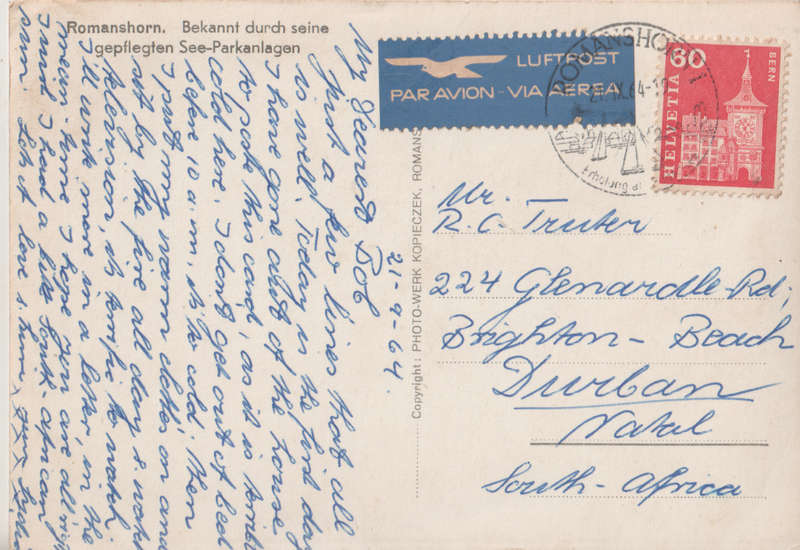 Romanshorn. Bekannt durch seine
gepflegten See-Parkanlagen
LUFTPOST
PAR AVION - VIA AEREA
ROMANSHORN
21.IX.64-12
60
HELVETIA
BERN
Copyright: PHOTO-WERK KOPIECZEK, ROMANS
Mr.
R. C. Truter
224 Glenardle-Rd;
Brighton - Beach
Durban
Natal
South-Africa
21-9-64.
My dearest Bob
just a few lines that all
is well. Today is the first day
I have gone out of the house
to post this card, as it is
cold here. I dont get out of bed
before 10 a.m. its to cold; then
I put my warm clothes on and
sit by the fire all day & watch
television, its to watch
I'll work more in a letter, in the
mean-time I hope you are all
I wish I had a little South-african
sun. Lots of love